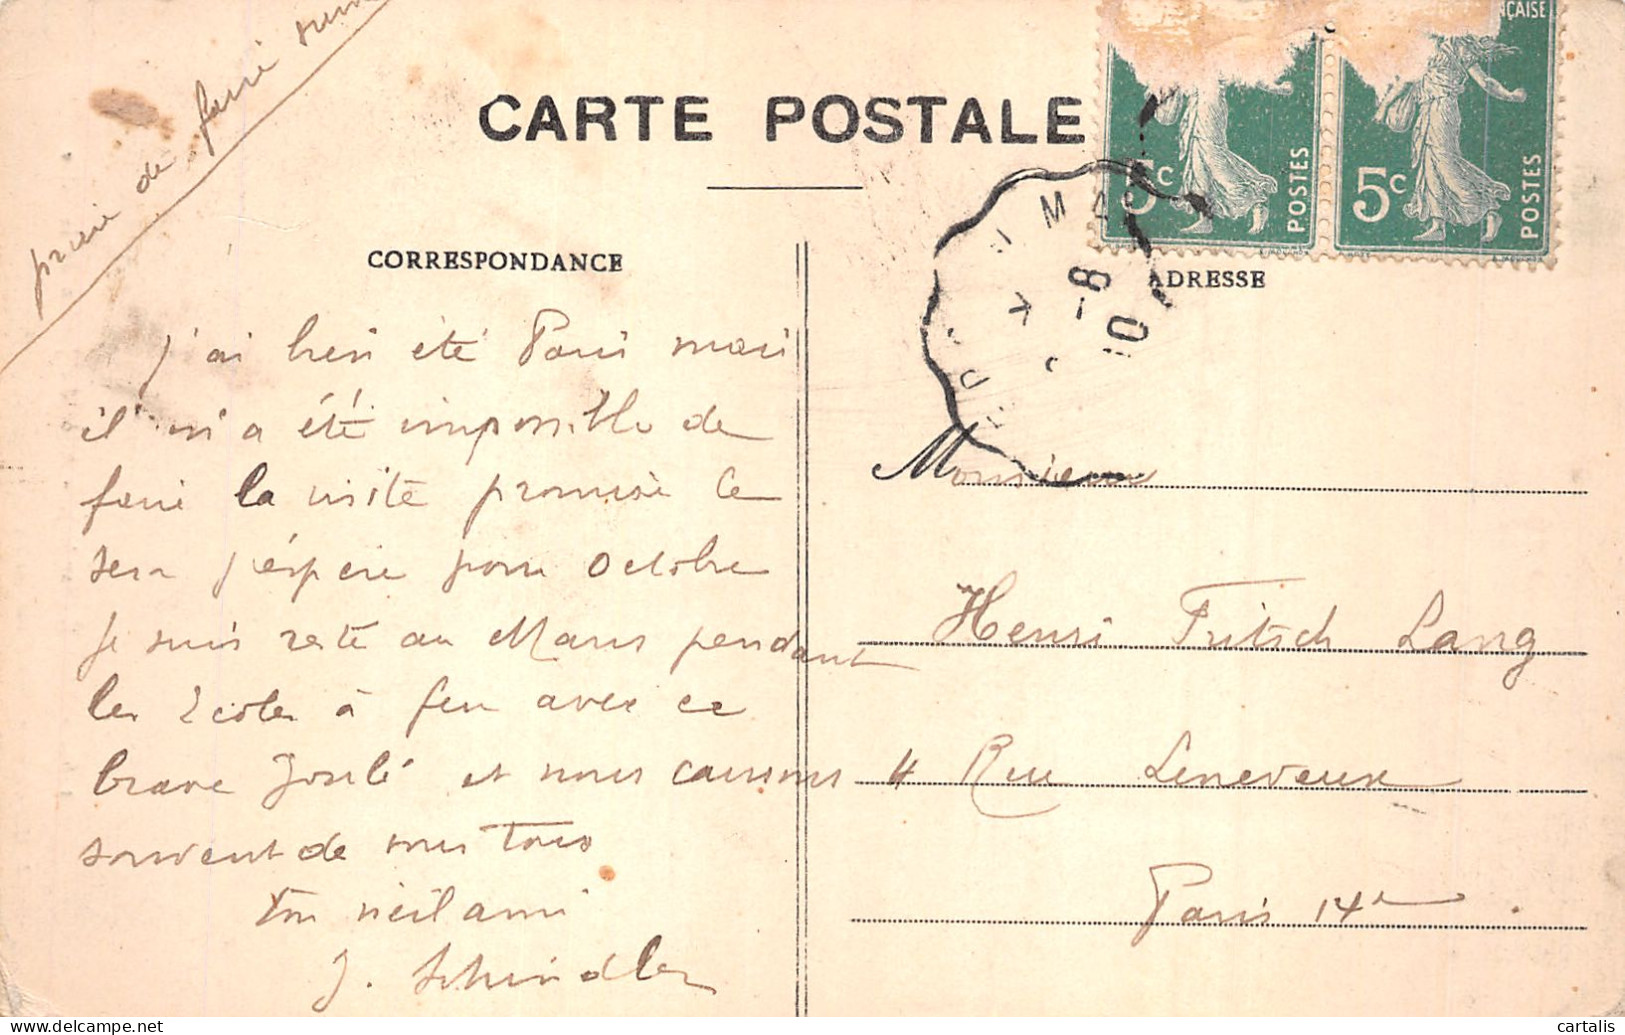 prière de faire suivre
CARTE POSTALE
CORRESPONDANCE
ADRESSE
5c POSTES
5c POSTES
ÇAISE
-8
10
J'ai bien été Paris mais
il m'a été impossible de
faire la visite promise Ce
sera j'espère pour Octobre
Je suis resté au Mans pendant
les Ecoles à feu avec ce
brave et nous causons
souvent de vous tous
Ton vieil ami
J. Schindler
Monsieur
Henri Fritsch Lang
4 Rue Leneveux
Paris 14e
cartalis